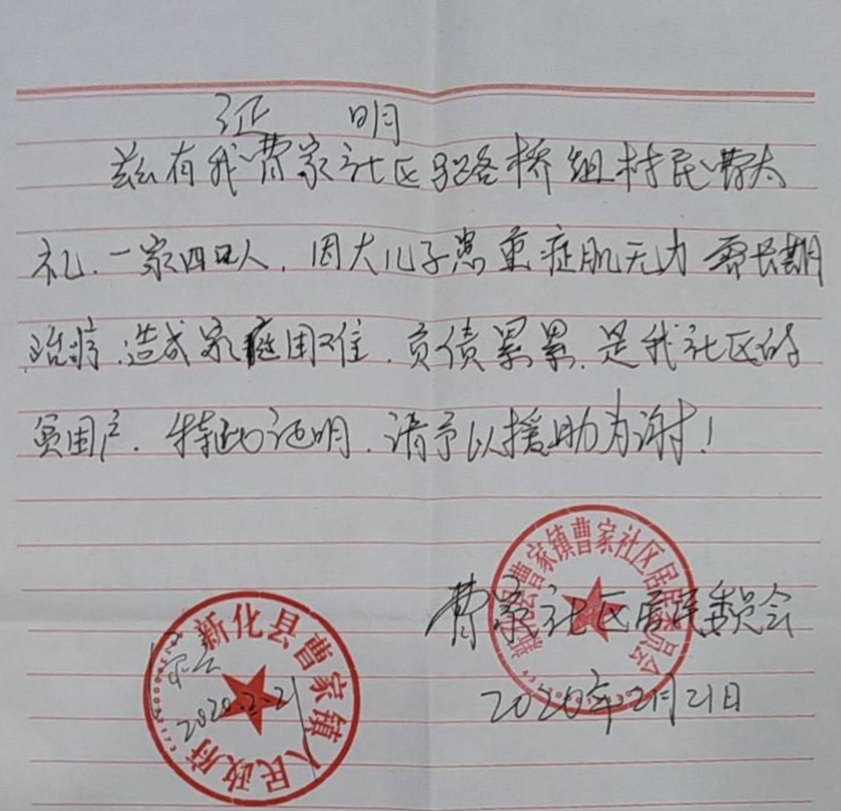 证 明
兹有我曹家社区路桥组村民曹太
礼、一家四口人，因大儿子患重症肌无力需长期
治疗，造成家庭困难，负债累累，是我社区的
贫困户，特此证明，请予以援助为谢！
新化县曹家镇曹家社区居民委员会
曹家社区居民委员会
2020年2月21日
新化县曹家镇人民政府
2020.2.21